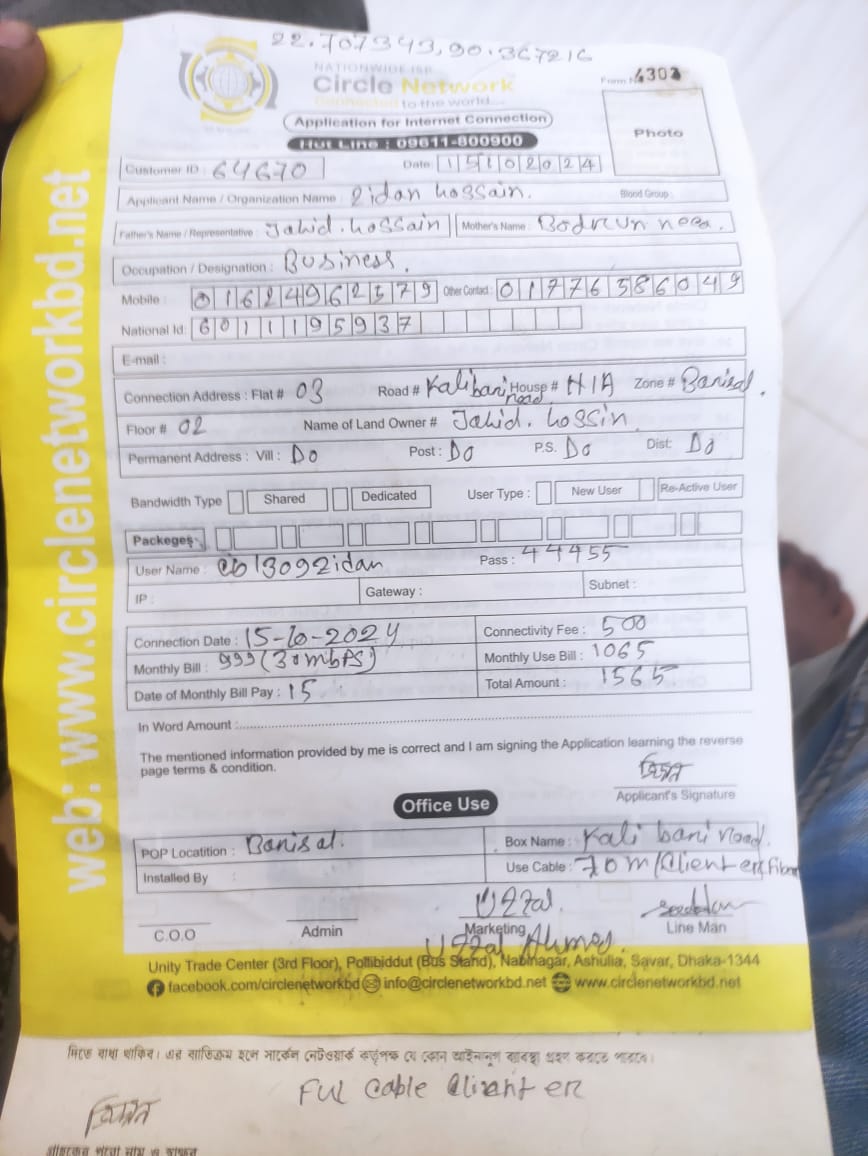 22.707343,90.367216
NATIONWIDE ISP
Circle Network
Connected to the world...
Form No 4303
Application for Internet Connection
Hot Line : 09611-800900
Photo
Customer ID : 64670
Date: 15102024
Applicant Name / Organization Name : Zidan hossain.
Blood Group :
Father's Name / Representative : Jahid. hossain
Mother's Name : Bodrun nesa.
Occupation / Designation : Business.
Mobile : 01624962379 Other Contact : 01776586049
National Id: 6011195937
E-mail :
Connection Address : Flat # 03 Road # Kalibari road House # N/A Zone # Barisal.
Floor # 02 Name of Land Owner # Jahid. hossin
Permanent Address : Vill : Do Post : Do P.S. Do Dist: Do
Bandwidth Type Shared Dedicated User Type : New User Re-Active User
Packeges
User Name : cb1309zidan Pass : 44455
IP : Gateway : Subnet :
Connection Date : 15-10-2024 Connectivity Fee : 500
Monthly Bill : 999 (30mbps) Monthly Use Bill : 1065
Date of Monthly Bill Pay : 15 Total Amount : 1565
In Word Amount :
The mentioned information provided by me is correct and I am signing the Application learning the reverse
page terms & condition.
Applicant's Signature
Office Use
POP Locatition : Barisal. Box Name : Kali bari road.
Installed By : Use Cable : 70m/Client er Fibar
Uzzal
C.O.O Admin Marketing Line Man
Uzzal Ahmed.
Unity Trade Center (3rd Floor), Pollibiddut (Bus Stand), Nabinagar, Ashulia, Savar, Dhaka-1344
facebook.com/circlenetworkbd info@circlenetworkbd.net www.circlenetworkbd.net
web: www.circlenetworkbd.net
দিতে বাধ্য থাকিব। এর ব্যতিক্রম হলে সার্কেল নেটওয়ার্ক কর্তৃপক্ষ যে কোন আইনানুগ ব্যবস্থা গ্রহণ করতে পারবে।
Ful Cable Client er